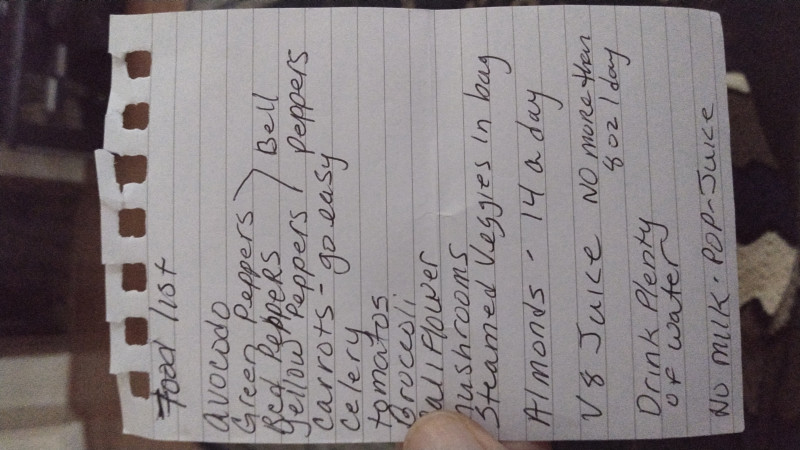 Food list
avocodo
Green Peppers
Red Peppers
Yellow Peppers
Bell
Peppers
Carrots - go easy
celery
tomatos
Broccoli
Califlower
mushrooms
Steamed Veggies in bag
Almonds - 14 a day
V8 Juice NO more than
8oz / day
Drink Plenty
of water
NO milk - POP - Juice